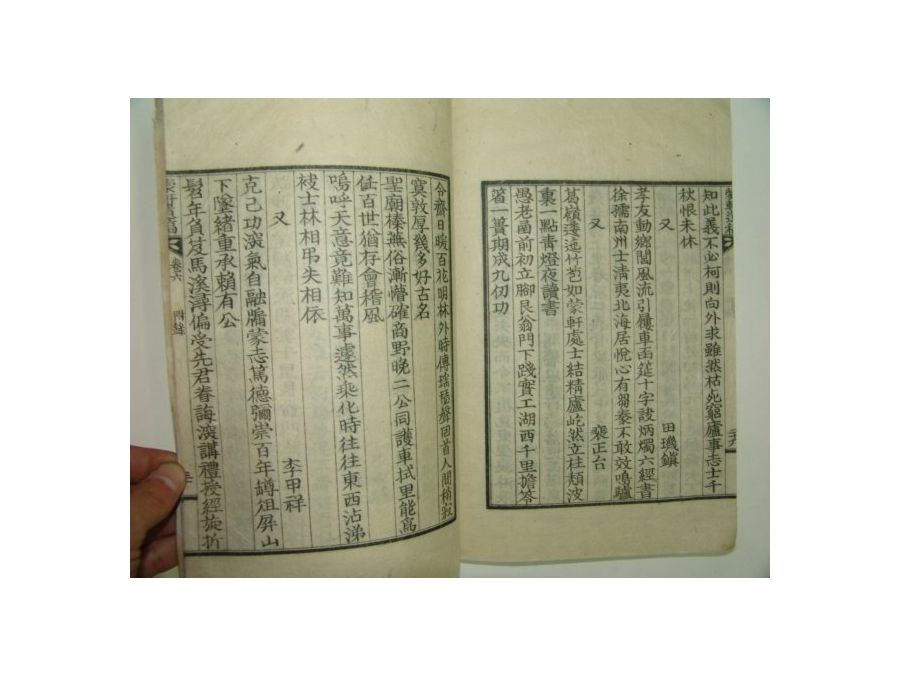 知此義不必柯則向外求雖然枯死窮廬事志士千
秋恨未休
又　田璣鎭
孝友動鄉閭風流引屨車函筵十字說炳燭六經書
徐孺南州士淸夷北海居悅心有芻豢不敢效鳴驢
又　裵正台
葛嶺逶迤竹苞如蒙軒處士結精廬屹然立柱頹波
裏一點靑燈夜讀書
愚老菌前初立腳艮翁門下踐實工湖西千里擔簦
簦一簣期成九仞功
令齋日暖百花明林外時傳瑤琴聲回首人間稹寂
寞敦厚幾多好古名
聖廟榛蕪俗漸懵確商野晩二公同護車拭里能高
任百世猶存會稽風
嗚呼天意竟難知萬事遽然乘化時往往東西沾涕
袂士林相弔失相依
又　李甲祥
克己功深氣自融牖蒙志篤德彌崇百年罇俎屛山
下墜緖重承賴有公
髫年負笈馬溪潯偏受先君眷誨深講禮授經旋折
卷六　附錄